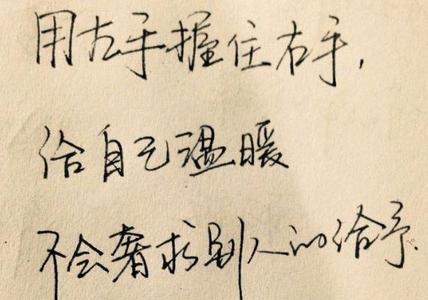 用左手握住右手，
给自己温暖
不会奢求别人的给予.